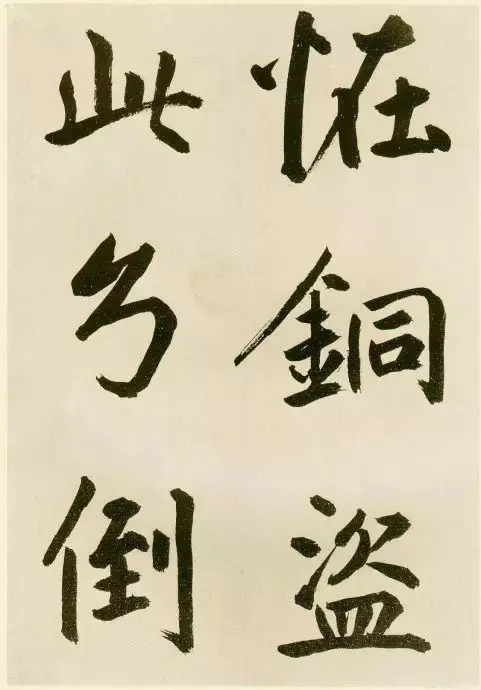 恠銅盗
此乃倒